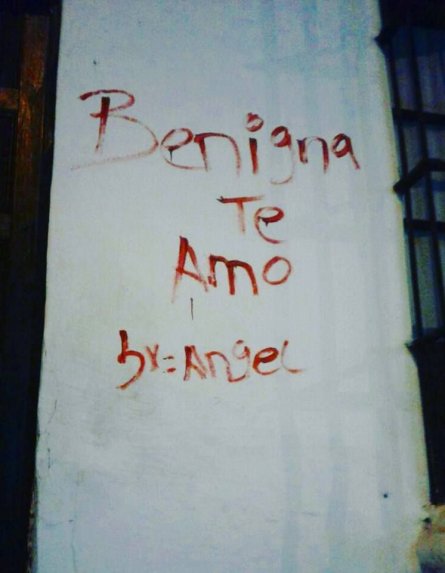 Benigna
Te
Amo
by=Angel